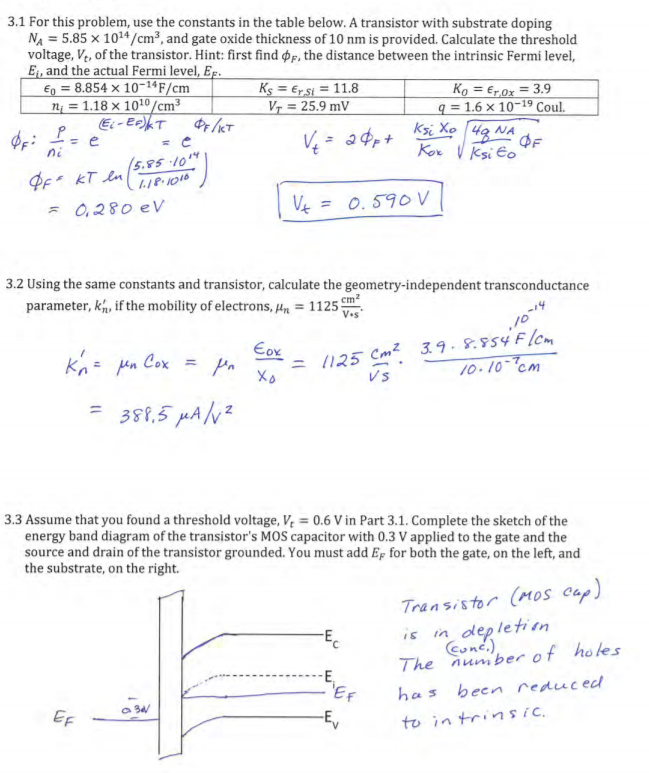 3.1 For this problem, use the constants in the table below. A transistor with substrate doping
N_A = 5.85 × 10¹⁴/cm³, and gate oxide thickness of 10 nm is provided. Calculate the threshold
voltage, V_t, of the transistor. Hint: first find ϕ_F, the distance between the intrinsic Fermi level,
E_i, and the actual Fermi level, E_F.
ϵ₀ = 8.854 × 10⁻¹⁴F/cm K_S = ϵ_r,Si = 11.8 K_O = ϵ_r,Ox = 3.9
n_i = 1.18 × 10¹⁰/cm³ V_T = 25.9 mV q = 1.6 × 10⁻¹⁹ Coul.
ϕ_F: p/n_i = e^(E_i-E_F)/kT = e^ϕ_F/kT
V_t = 2ϕ_F + K_Si X_o/K_ox √(4q N_A/K_Si ϵ_o ϕ_F)
ϕ_F = kT ln(5.85·10¹⁴/1.18·10¹⁰)
= 0.280 eV
V_t = 0.590 V
3.2 Using the same constants and transistor, calculate the geometry-independent transconductance
parameter, k'_n, if the mobility of electrons, μ_n = 1125 cm²/V•s.
k'_n = μ_n Cox = μ_n ϵ_ox/X_o = 1125 cm²/Vs · 3.9 · 8.854·10⁻¹⁴ F/cm / 10·10⁻⁷cm
= 388.5 μA/V²
3.3 Assume that you found a threshold voltage, V_t = 0.6 V in Part 3.1. Complete the sketch of the
energy band diagram of the transistor's MOS capacitor with 0.3 V applied to the gate and the
source and drain of the transistor grounded. You must add E_F for both the gate, on the left, and
the substrate, on the right.
E_c
E_i
E_F
E_v
E_F
0.3V
Transistor (MOS cap)
is in depletion
(conc.)
The number of holes
has been reduced
to intrinsic.